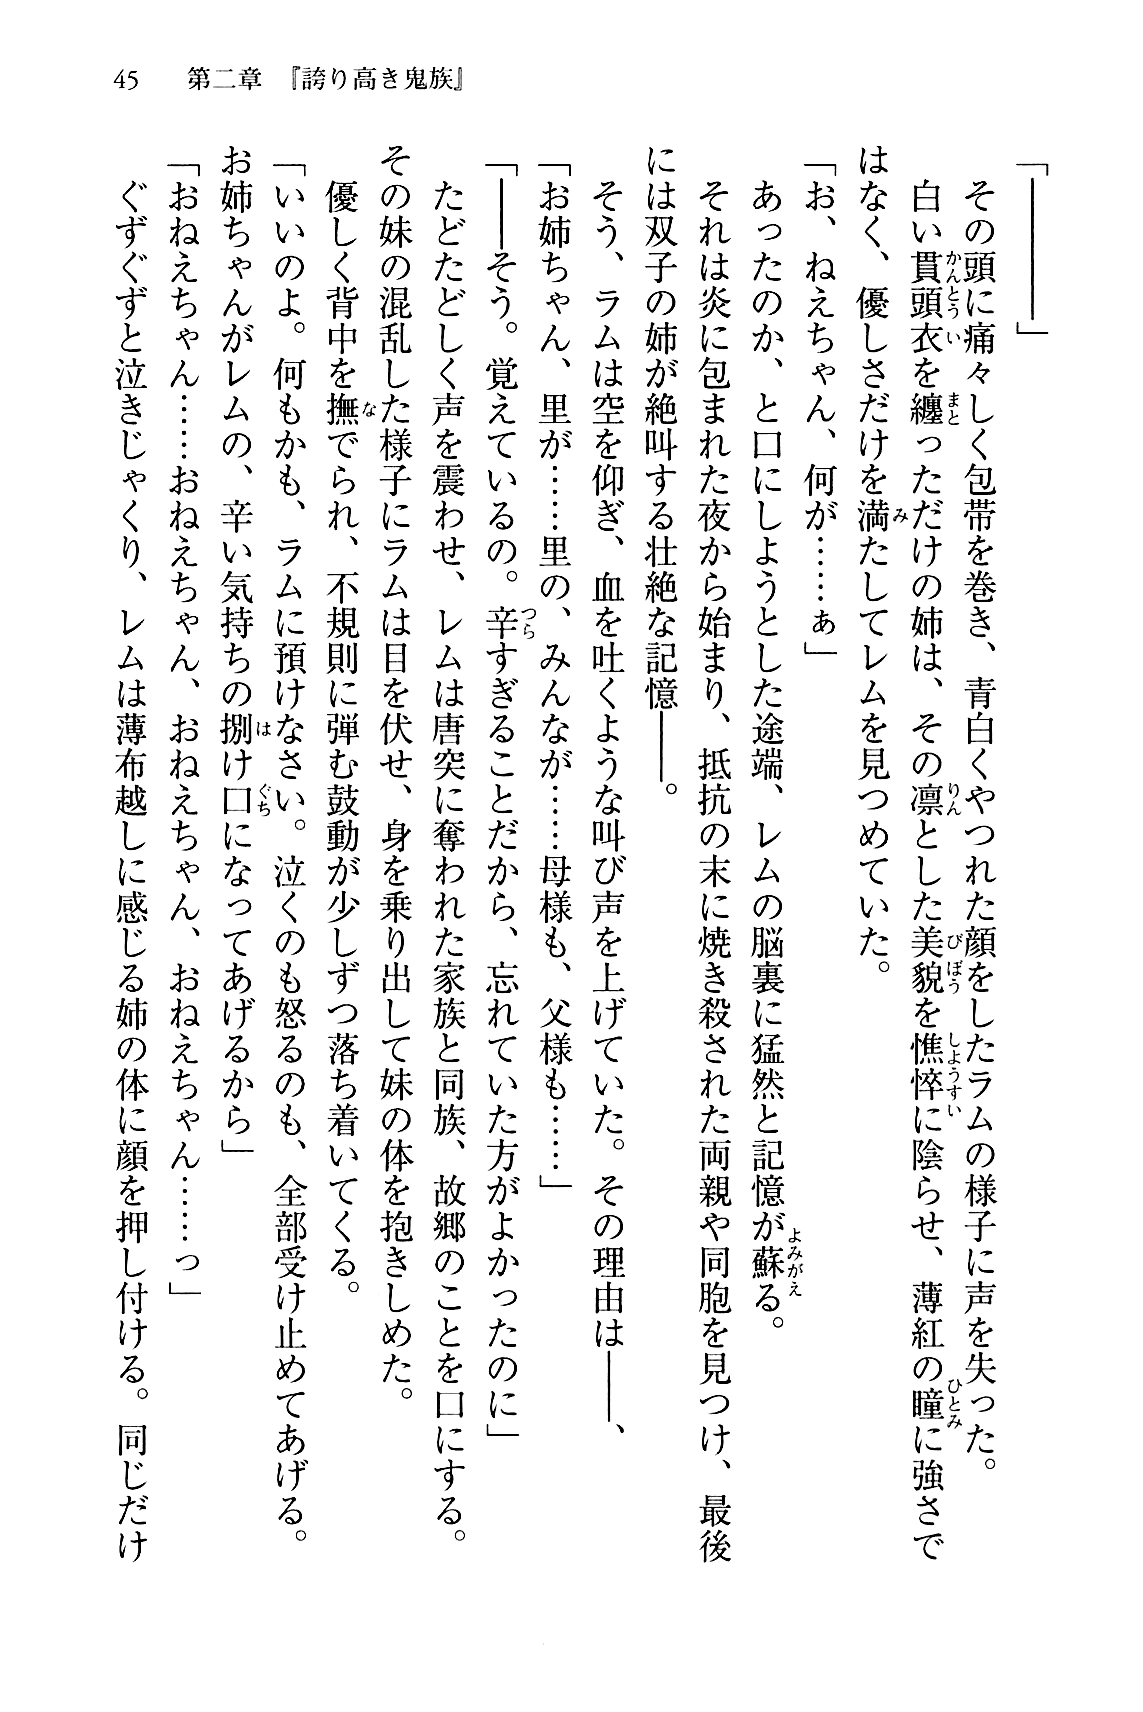 45　第二章　『誇り高き鬼族』
「――――」
　その頭に痛々しく包帯を巻き、青白くやつれた顔をしたラムの様子に声を失った。
　白い貫頭衣を纏っただけの姉は、その凛とした美貌を憔悴に陰らせ、薄紅の瞳に強さで
はなく、優しさだけを満たしてレムを見つめていた。
「お、ねえちゃん、何が……ぁ」
　あったのか、と口にしようとした途端、レムの脳裏に猛然と記憶が蘇る。
　それは炎に包まれた夜から始まり、抵抗の末に焼き殺された両親や同胞を見つけ、最後
には双子の姉が絶叫する壮絶な記憶――。
　そう、ラムは空を仰ぎ、血を吐くような叫び声を上げていた。その理由は――、
「お姉ちゃん、里が……里の、みんなが……母様も、父様も……」
「――そう。覚えているの。辛すぎることだから、忘れていた方がよかったのに」
　たどたどしく声を震わせ、レムは唐突に奪われた家族と同族、故郷のことを口にする。
その妹の混乱した様子にラムは目を伏せ、身を乗り出して妹の体を抱きしめた。
　優しく背中を撫でられ、不規則に弾む鼓動が少しずつ落ち着いてくる。
「いいのよ。何もかも、ラムに預けなさい。泣くのも怒るのも、全部受け止めてあげる。
お姉ちゃんがレムの、辛い気持ちの捌け口になってあげるから」
「おねえちゃん……おねえちゃん、おねえちゃん、おねえちゃん……っ」
　ぐずぐずと泣きじゃくり、レムは薄布越しに感じる姉の体に顔を押し付ける。同じだけ